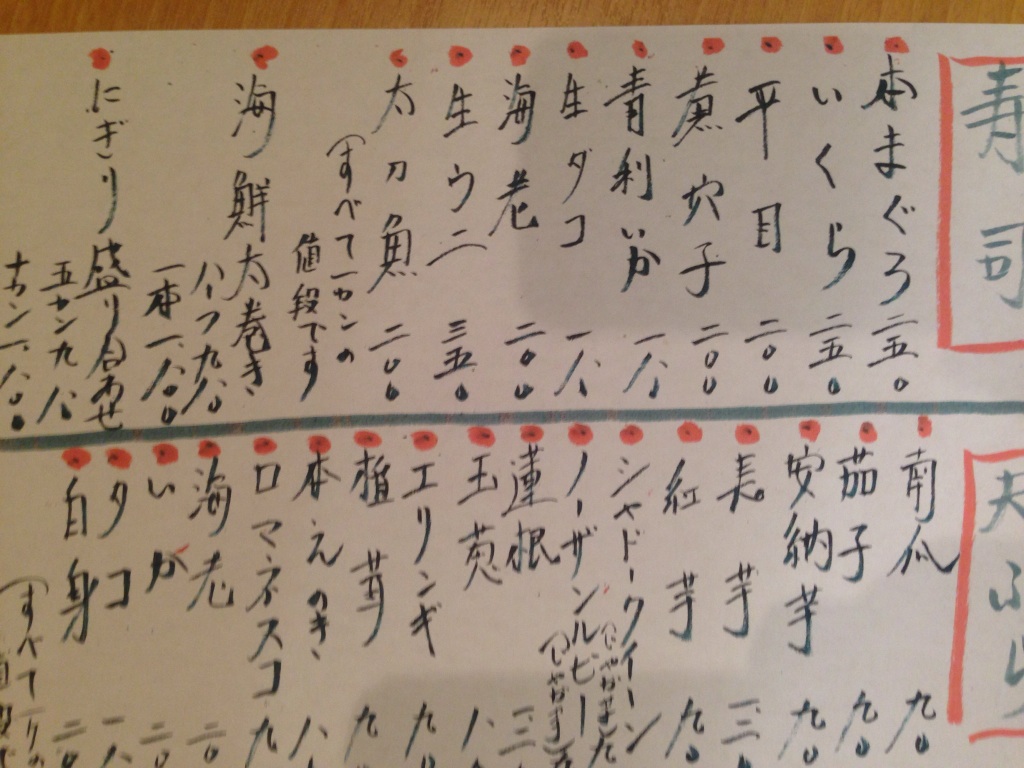 寿司
本まぐろ 二五〇
いくら 二五〇
平目 二〇〇
煮穴子 二〇〇
青利いか 一八〇
生タコ 一八〇
海老 二〇〇
生ウニ 三五〇
太刀魚 二〇〇
(すべて一カンの
値段です
海鮮太巻き
ハーフ九八〇
一本一、八〇〇
にぎり盛り合わせ
五カン九八〇
十カン一、八〇〇
天ぷら
南瓜 九〇
茄子 九〇
安納芋 九〇
長芋 一三〇
紅芋 九〇
シャドークイーン(じゃが芋)九
ノーザンルビー(じゃが芋)
蓮根 一三
玉葱 八
エリンギ 九
椎茸 九
本えのき 八
ロマネスコ 九
海老 二〇
いか 二〇
タコ 一八
白身 二〇
(すべて一ケの